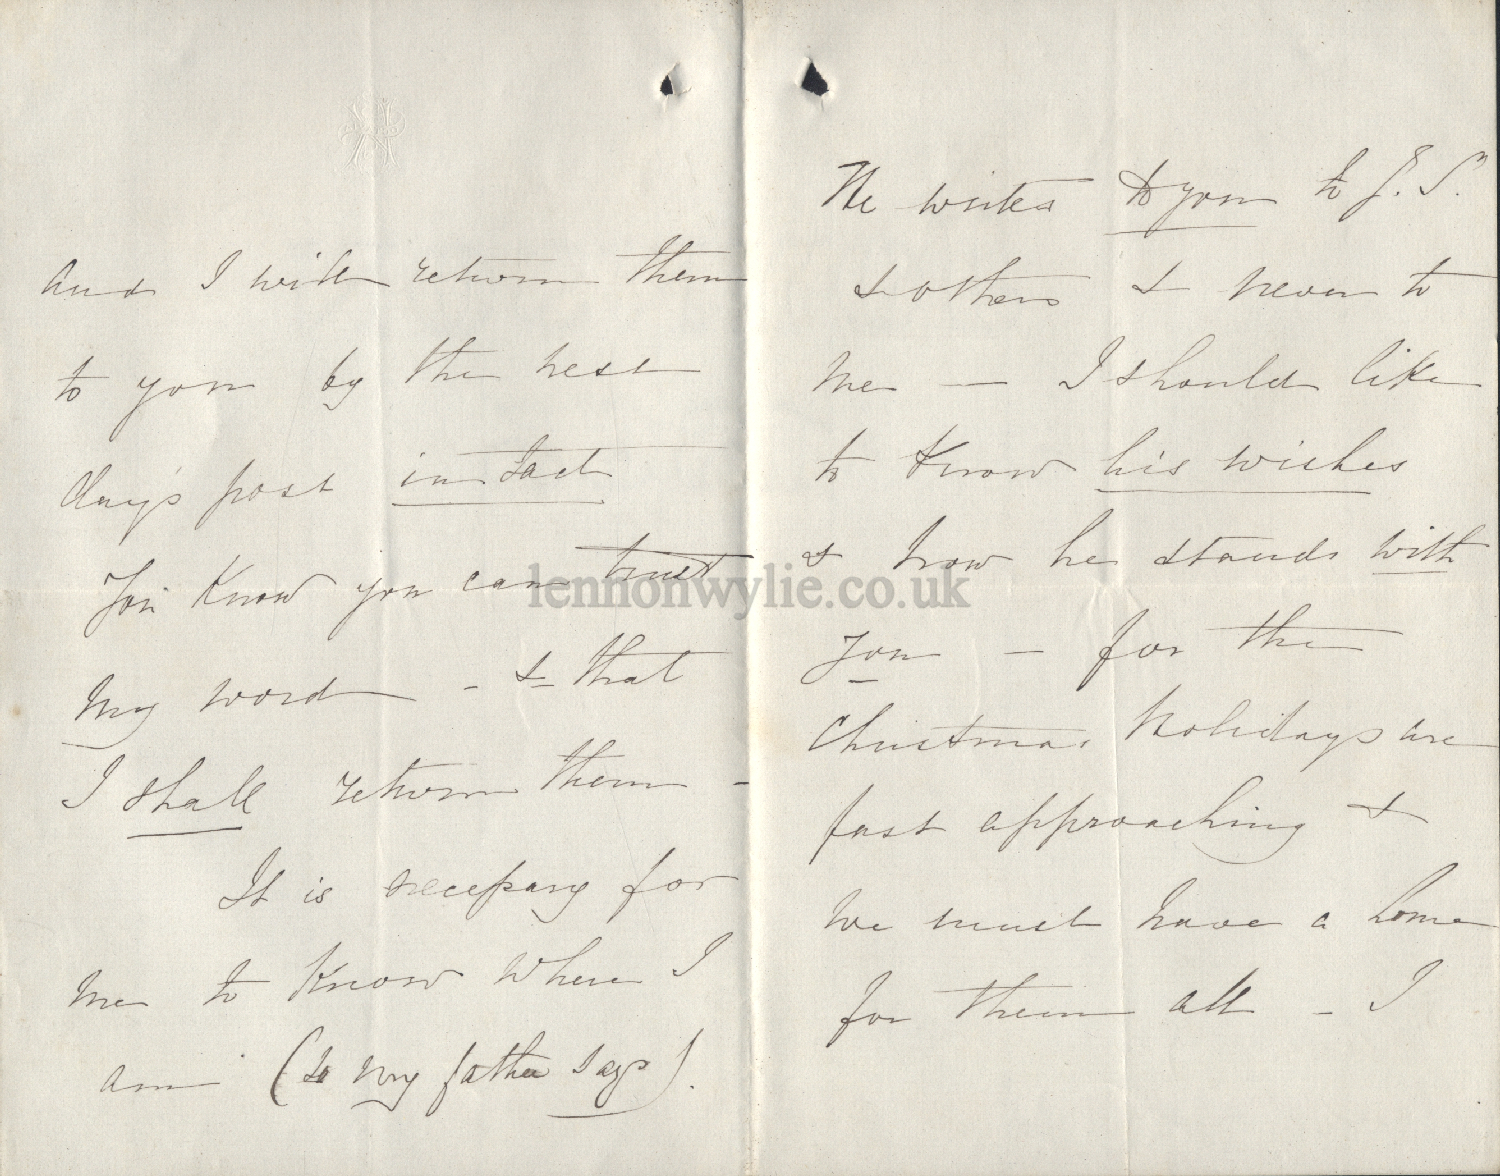 and I will return them
to you by the next
day's post in tact
You Know you can trust
my word - & that
I shall return them -
It is necessary for
me to Know where I
am (so my father says).
He writes to you to J. S.
& others & never to
me — I should like
to Know his wishes
& how he stands with
you — for the
Christmas holidays are
fast approaching &
we must have a home
for them all - I
lennonwylie.co.uk